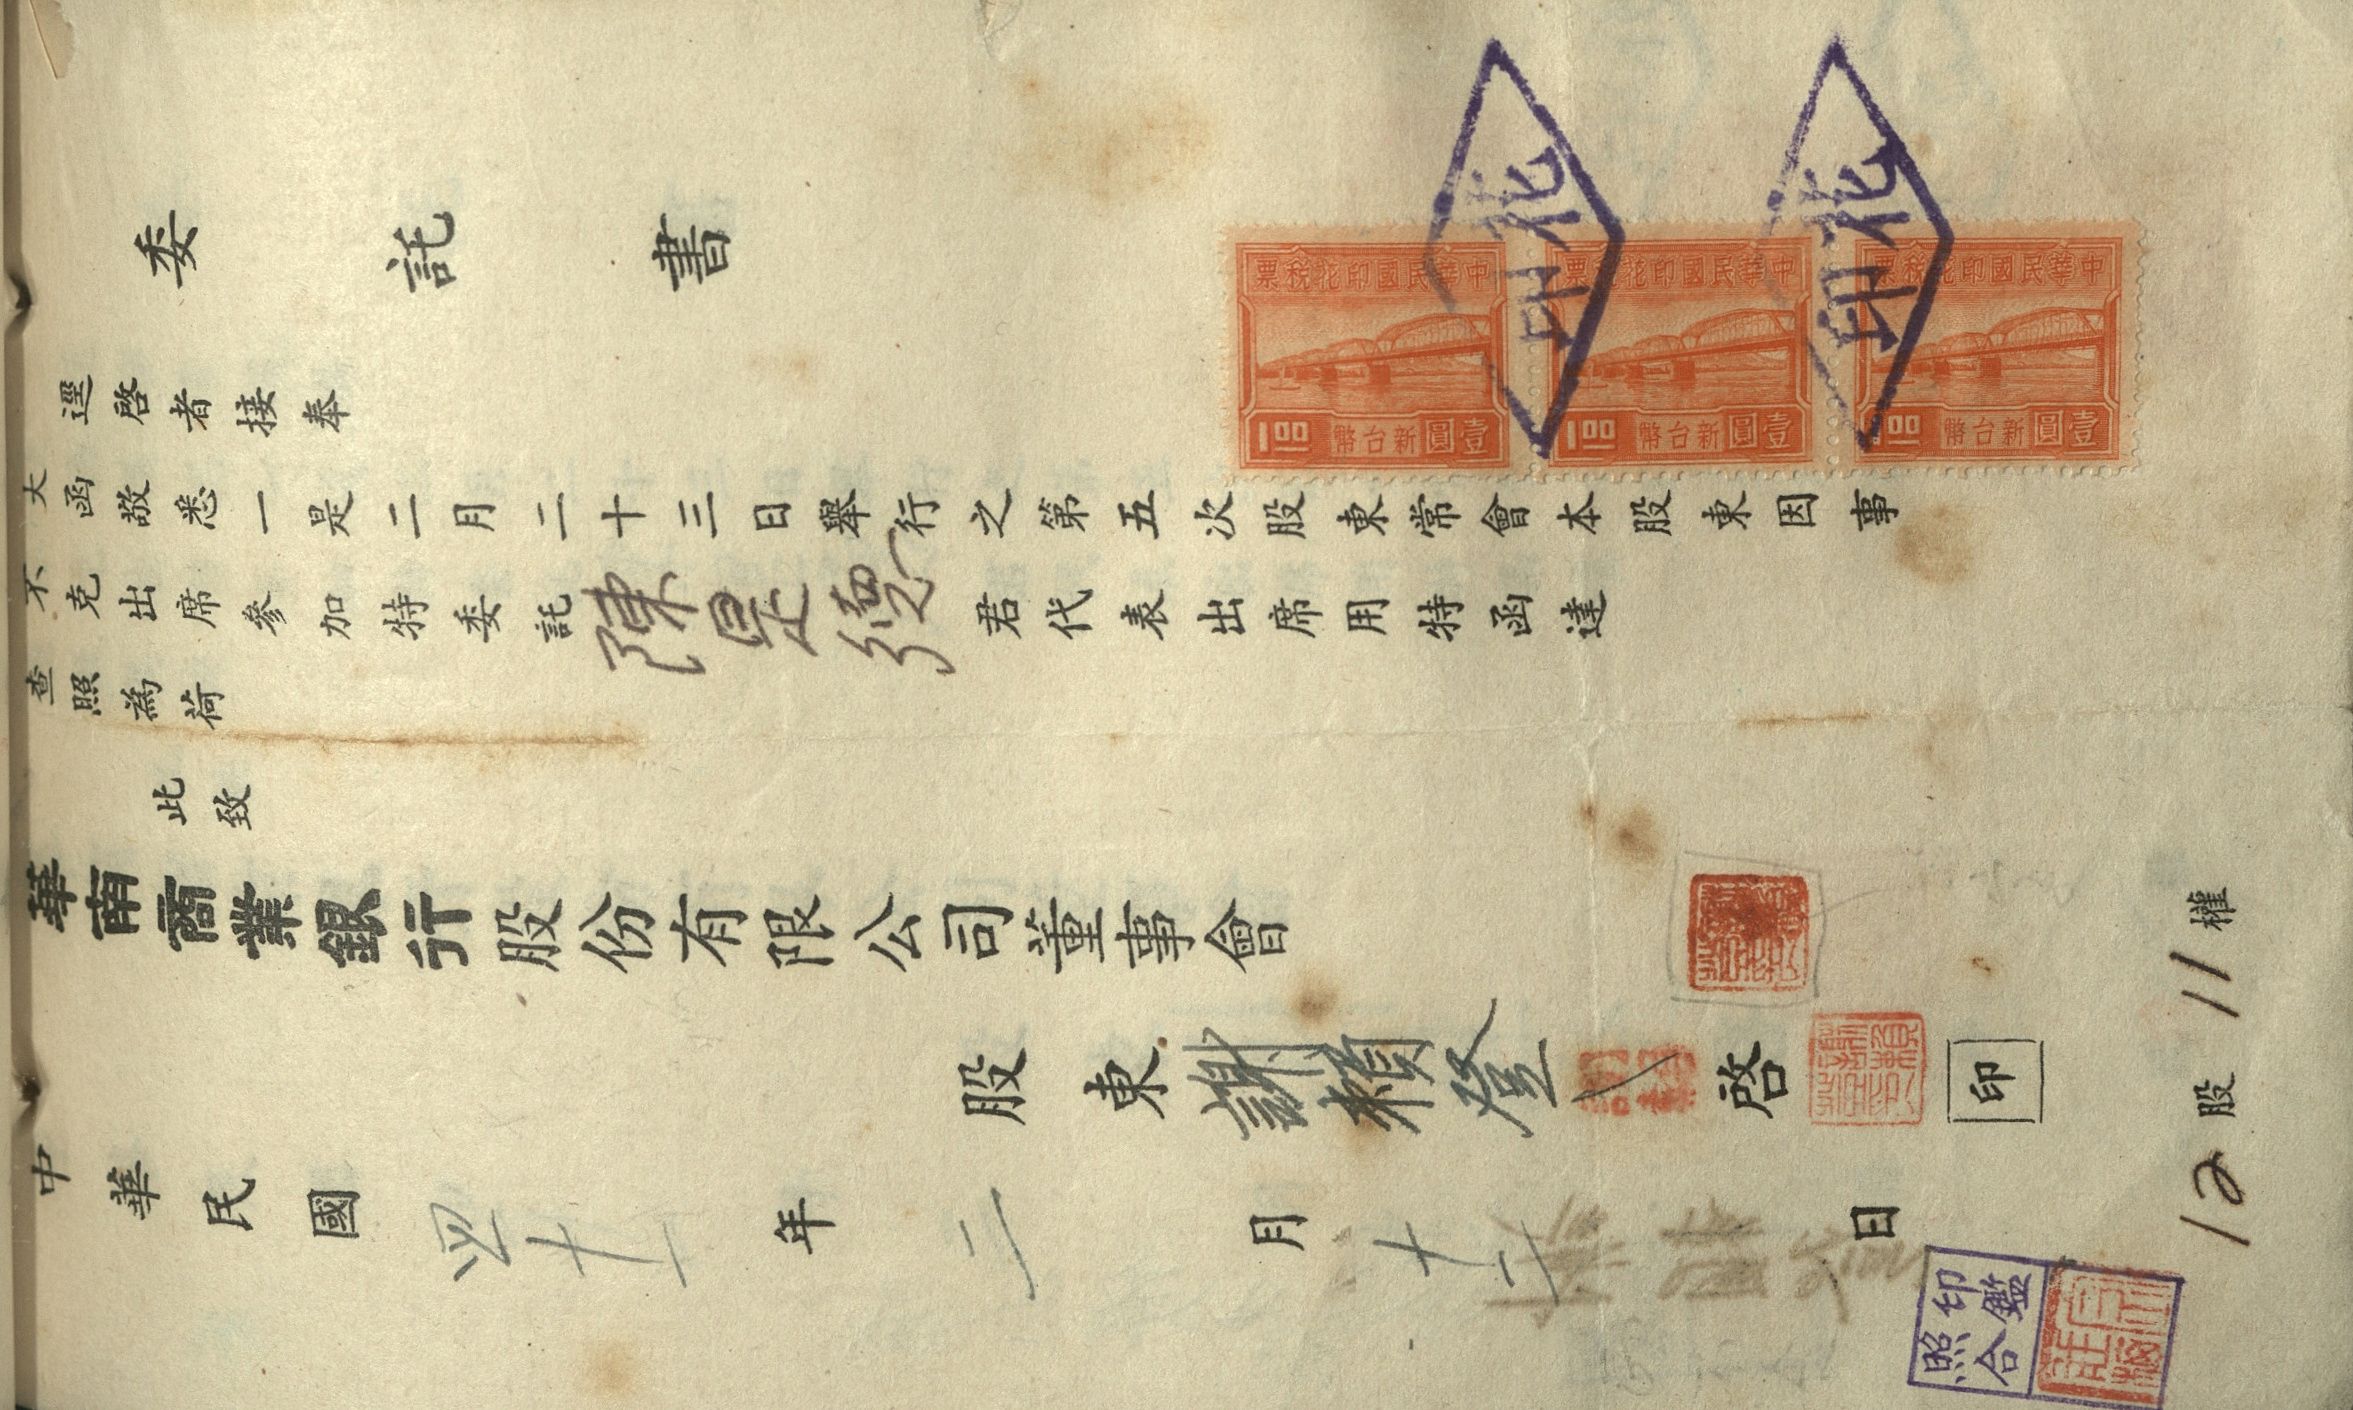 委託書
逕啓者接奉
大函敬悉一是二月二十三日舉行之第五次股東常會本股東因事
不克出席參加特委託陳是德君代表出席用特函達
查照為荷
此致
華南商業銀行股份有限公司董事會
股東謝賴登啓印
中華民國四十一年二月十二日
12股 11權
中華民國印花稅票
新台幣壹圓
1.00
中華民國印花稅票
新台幣壹圓
1.00
中華民國印花稅票
新台幣壹圓
1.00
印花
印花
印鑑
照合